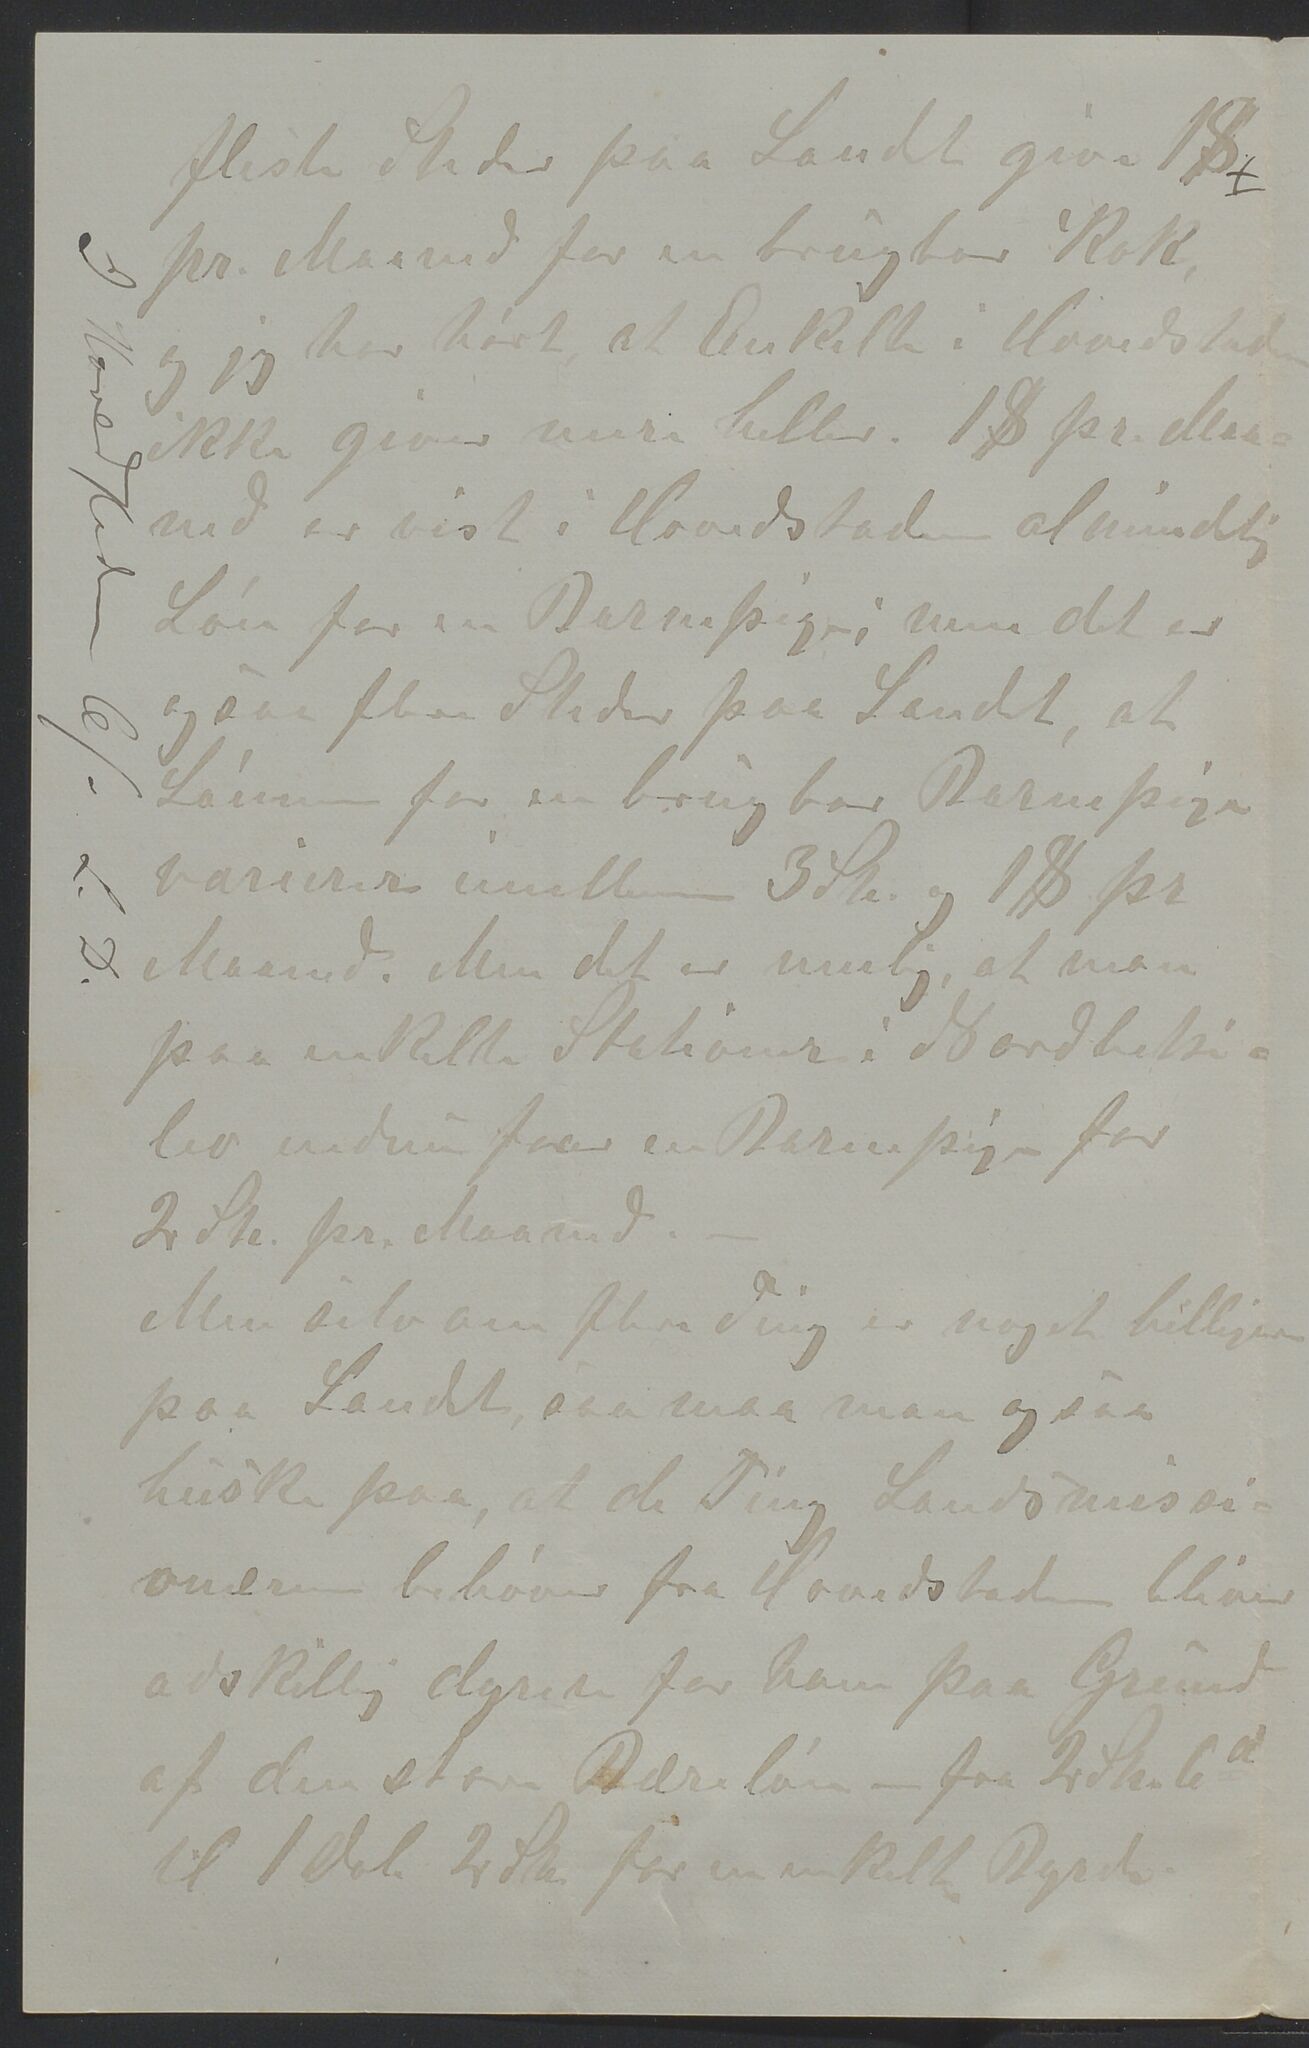 fleste Steder paa Landet give 1$ +
pr. Maaned for en brugbar Kok,
og jeg har hørt, at Enkelte i Hovedstaden
ikke giver mere heller. 1$ pr. Maa-
ned er vist i Hovedstaden almindelig
Løn for en Barnepige; men det er
ogsaa flere Steder paa Landet, at
Lønnen for en brugbar Barnepige
varierer imellem 3 Sh. og 1$ pr
Maaned. Men det er mulig, at man
paa enkelte Stationer i Nordbetsi-
leo endnu faar en Barnepige for
2 Sh. pr. Maaned. —
Men selv om flere Ting er noget billigere
paa Landet, saa maa man ogsaa
huske paa, at de Ting Landsmissi-
onæren behøver fra Hovedstaden bliver
adskillig dyrere for ham paa Grund
af den store Bæreløn — fra 2 Sh. 6d
til 1 Dol. 2 Sh for en enkelt Byrde.
I Hovedstaden 6/- L. D.